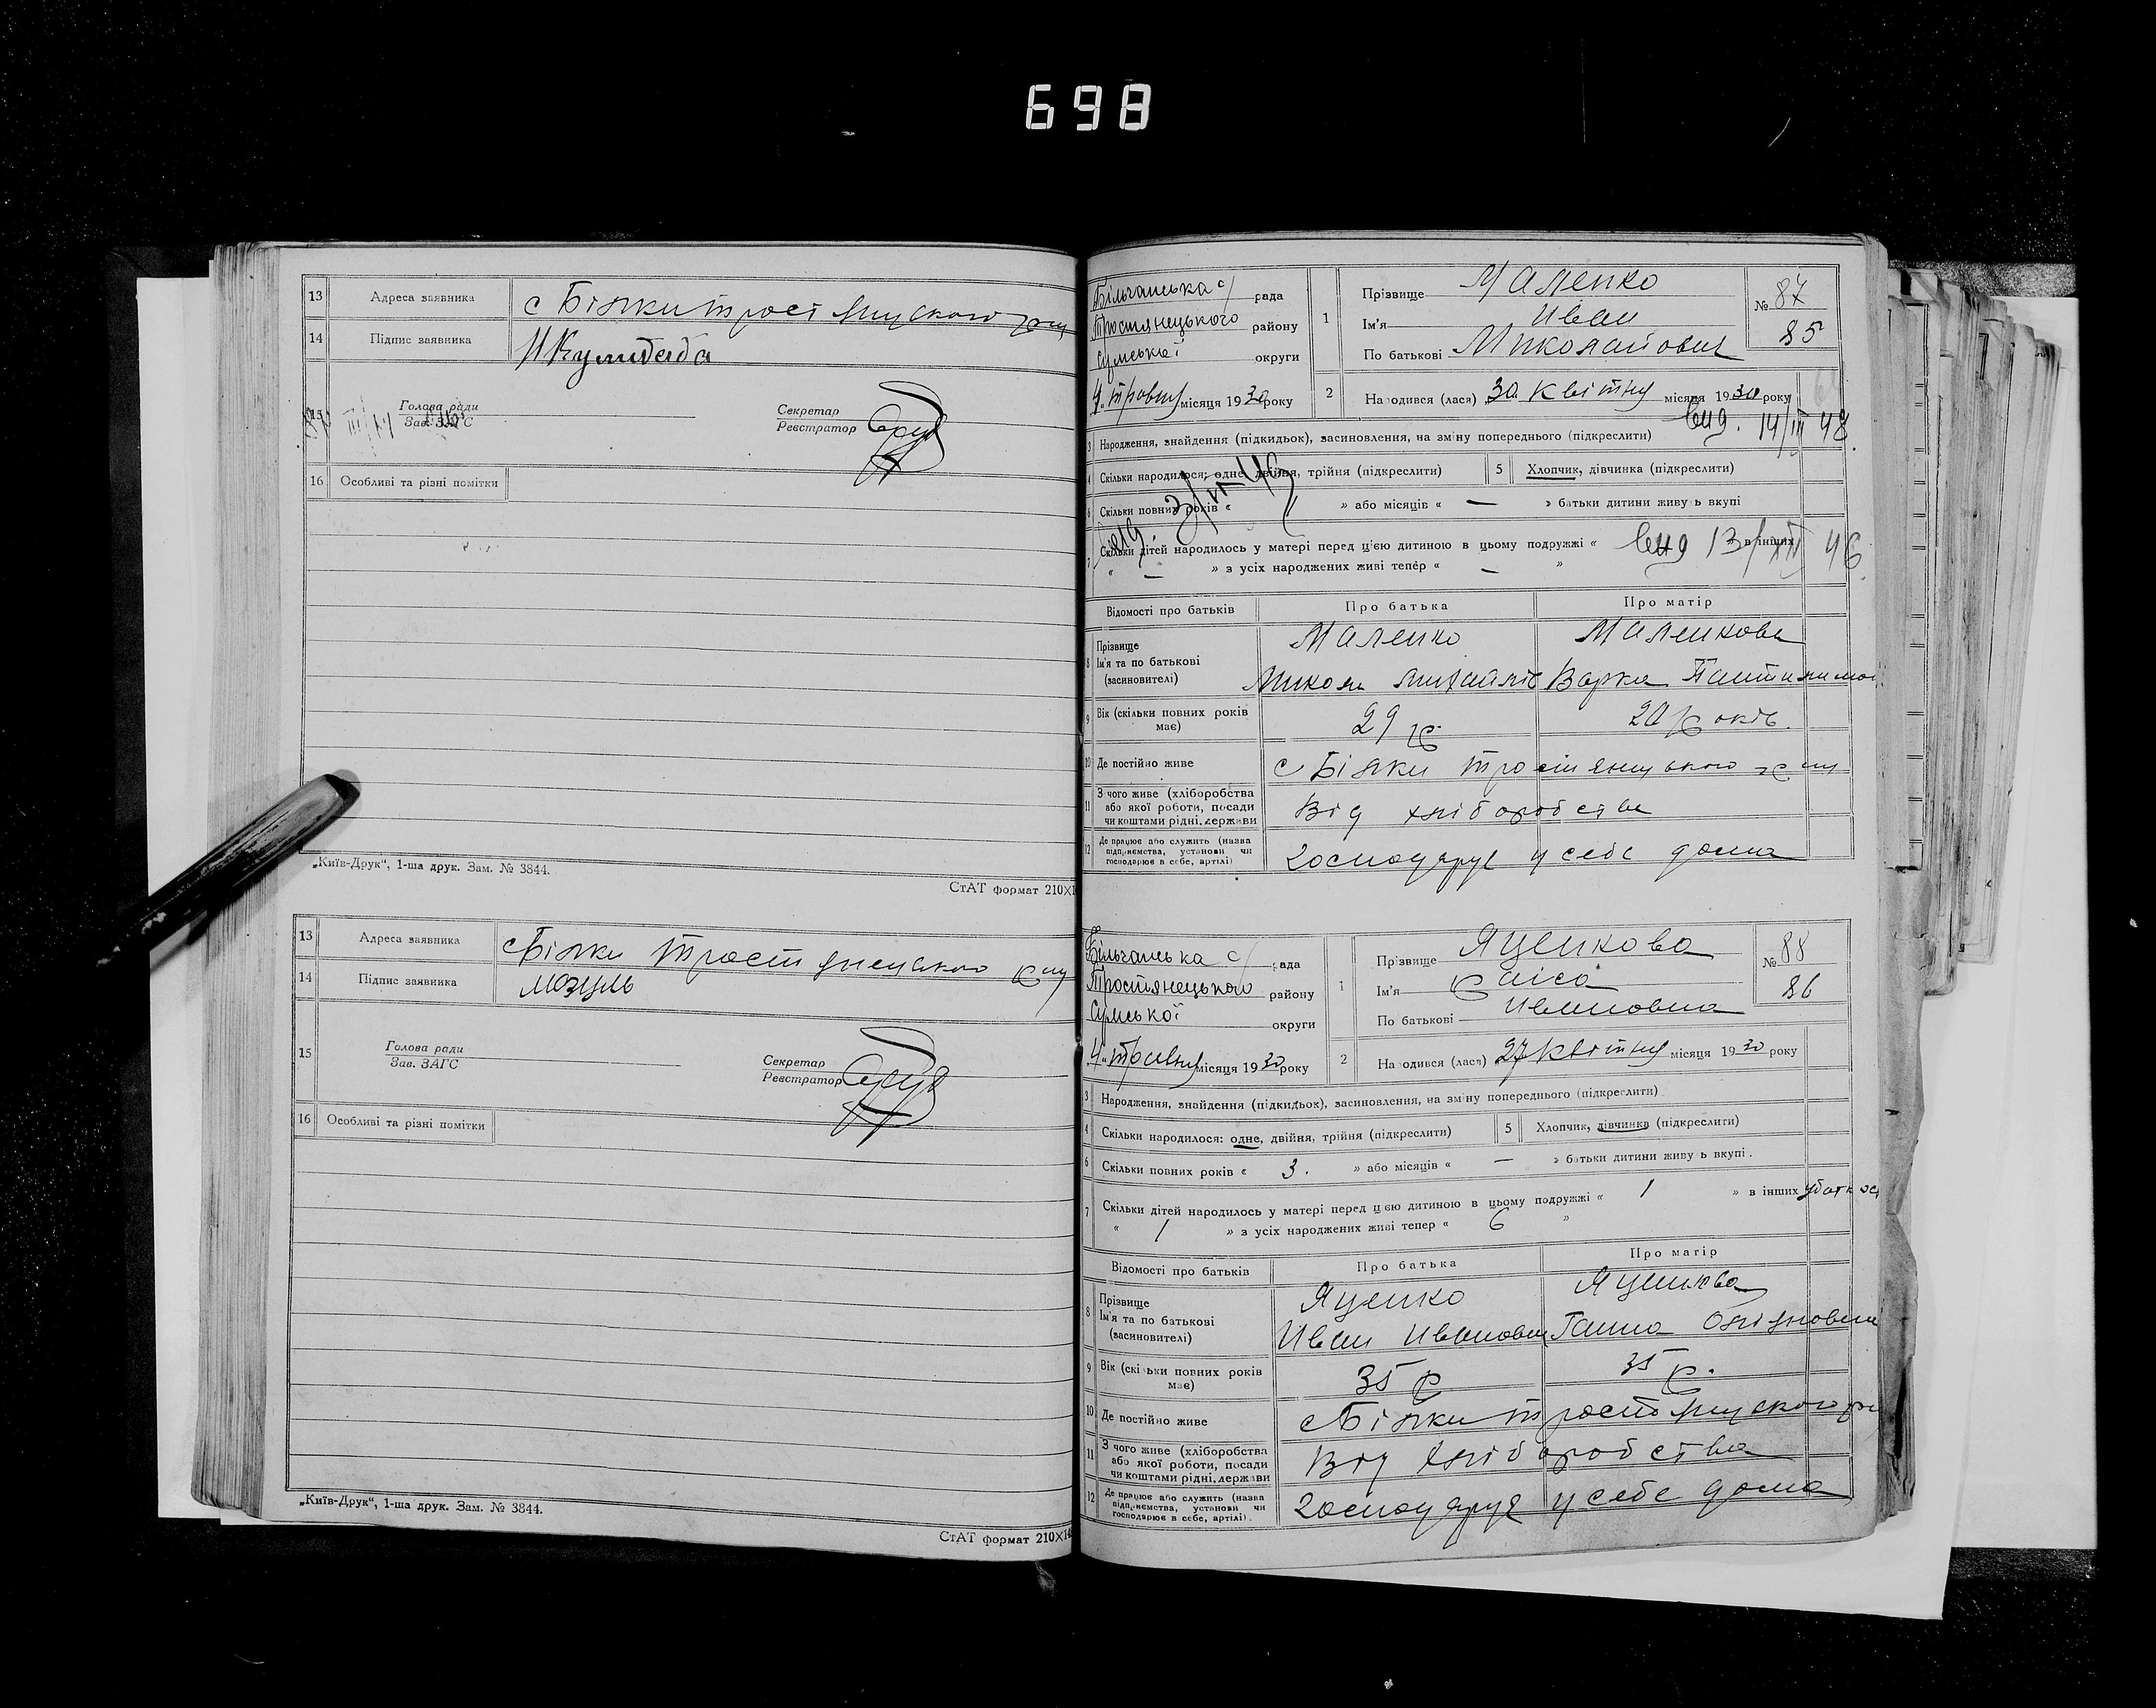 698
13 Адреса заявника с Білки
14 Підпис заявника
15 Голова ради
Зав. ЗАГС
Секретар
Реєстратор
16 Особливі та різні помітки
„Київ-Друк“, 1-ша друк. Зам. № 3844.
СтАТ формат 210X1
13 Адреса заявника с Білки
14 Підпис заявника
15 Голова ради
Зав. ЗАГС
Секретар
Реєстратор
16 Особливі та різні помітки
„Київ-Друк“, 1-ша друк. Зам. № 3844.
СтАТ формат 210X14
Більчанська с/ рада
Тростянецького району
Сумської округи
4 травня місяця 1930 року
1 Прізвище Маленко
Ім'я Иван
По батькові Миколайович
№ 87
85
2 Народився (лася) 30 квітня місяця 1930 року
вид. 14/III 48
3 Народження, знайдення (підкидьок), засиновлення, на зміну попереднього (підкреслити)
4 Скільки народилося: одне, двійня, трійня (підкреслити) 5 Хлопчик, дівчинка (підкреслити)
6 Скільки повних років « » або місяців « — » батьки дитини живуть вкупі
7 Скільки дітей народилось у матері перед цією дитиною в цьому подружжі « » в інших
вид 13/XII 46
« — » з усіх народжених живі тепер « — »
Відомості про батьків Про батька Про матір
8 Прізвище Маленко Маленкова
Ім'я та по батькові
(засиновителі) Микола Варка
9 Вік (скільки повних років має) 29 р. 20 років.
10 Де постійно живе с Білки
11 З чого живе (хліборобства
або якої роботи, посади
чи коштами рідні, держави Від хліборобства
12 Де працює або служить (назва
підприємства, установи чи
господарює в себе, артілі) господарує у себе дома
Більчанська с/ рада
Тростянецького району
Сумської округи
4 травня місяця 1930 року
1 Прізвище Яценкова
Ім'я Раіса
По батькові Ивановна
№ 88
86
2 Народився (лася) 27 квітня місяця 1930 року
3 Народження, знайдення (підкидьок), засиновлення, на зміну попереднього (підкреслити)
4 Скільки народилося: одне, двійня, трійня (підкреслити) 5 Хлопчик, дівчинка (підкреслити)
6 Скільки повних років « 3. » або місяців « — » батьки дитини живуть вкупі.
7 Скільки дітей народилось у матері перед цією дитиною в цьому подружжі « 1 » в інших
« 1 » з усіх народжених живі тепер « 6 »
Відомості про батьків Про батька Про матір
8 Прізвище Яценко Яценкова
Ім'я та по батькові
(засиновителі) Иван Иванович Ганна
9 Вік (скільки повних років має) 35 р 35 р.
10 Де постійно живе с Білки
11 З чого живе (хліборобства
або якої роботи, посади
чи коштами рідні, держави Від хліборобства
12 Де працює або служить (назва
підприємства, установи чи
господарює в себе, артілі). господарує у себе дома